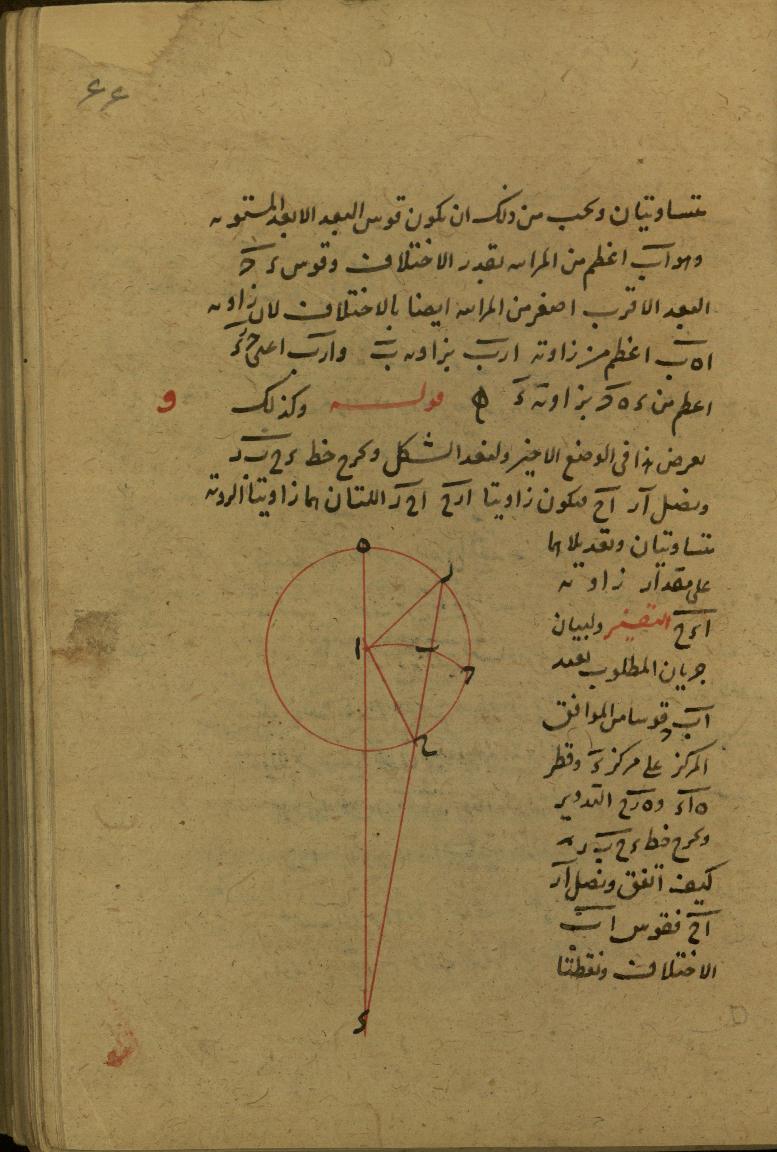 ٤٤
متساويتان ويجب من ذلك ان يكون قوس البعد الابعد المستوية
وهو اب اعظم من المرئية بقدر الاختلاف وقوس ء ح
البعد الاقرب اصغر من المرئية ايضا بالاختلاف لان زاوية
ا ه ب اعظم من زاوية ا ر ب بزاوية ب و ا ر ب اعنى
اعظم من ء ه ح بزاوية ء قوله وكذلك
و
يعرض هذا فى الوضع الاخير ولنعد الشكل ونخرج خط ء ح ب ر
ونصل ا ر ا ح فتكون زاويتا ا ر ح ا ح ر اللتان هما زاويتا الروية
متساويتان وتعديلاهما
على مقدار زاوية
ا ء ح التفسير ولبيان
جريان المطلوب نعيد
ا ب ح قوسا من الموافق
المركز على مركز ء وقطر
ه ا ء و ه ر ح التدوير
ونخرج خط ء ح ب ر
كيف اتفق ونصل ا ر
ا ح فقوس ا ب
الاختلاف ونقطتا
ه
ر
ا
ب
ح
ء